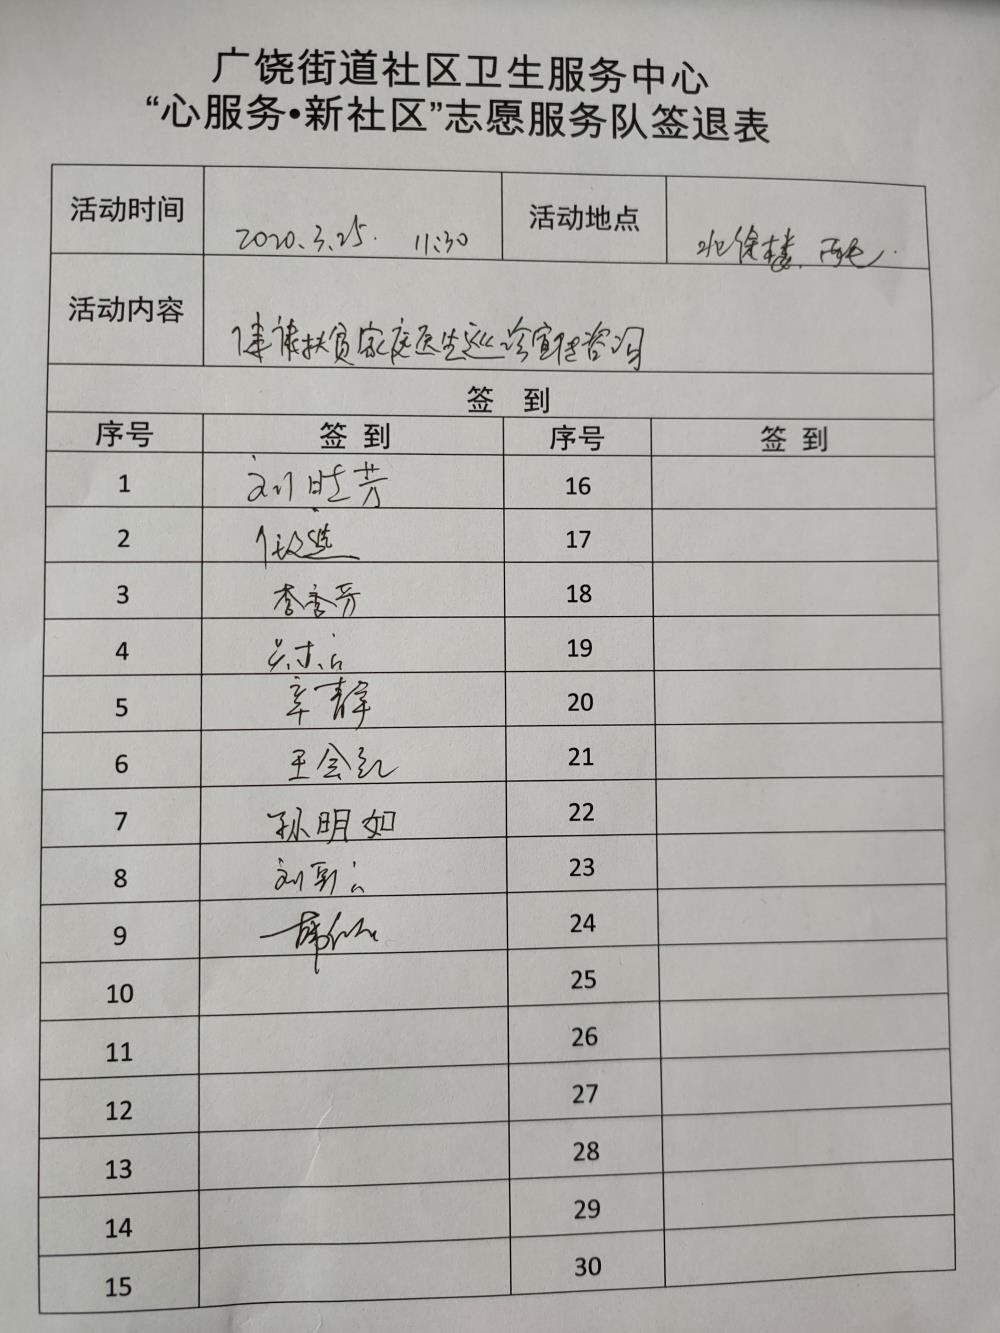 广饶街道社区卫生服务中心
“心服务•新社区”志愿服务队签退表
活动时间 2020.3.25. 11:30 活动地点 北徐楼.
活动内容 健康扶贫家庭医生巡诊宣传咨询
签 到
序号 签 到 序号 签 到
1 刘 芳 16
2 17
3 李秀芳 18
4 19
5 辛青 20
6 王会红 21
7 孙明如 22
8 刘 23
9 韩 24
10 25
11 26
12 27
13 28
14 29
15 30